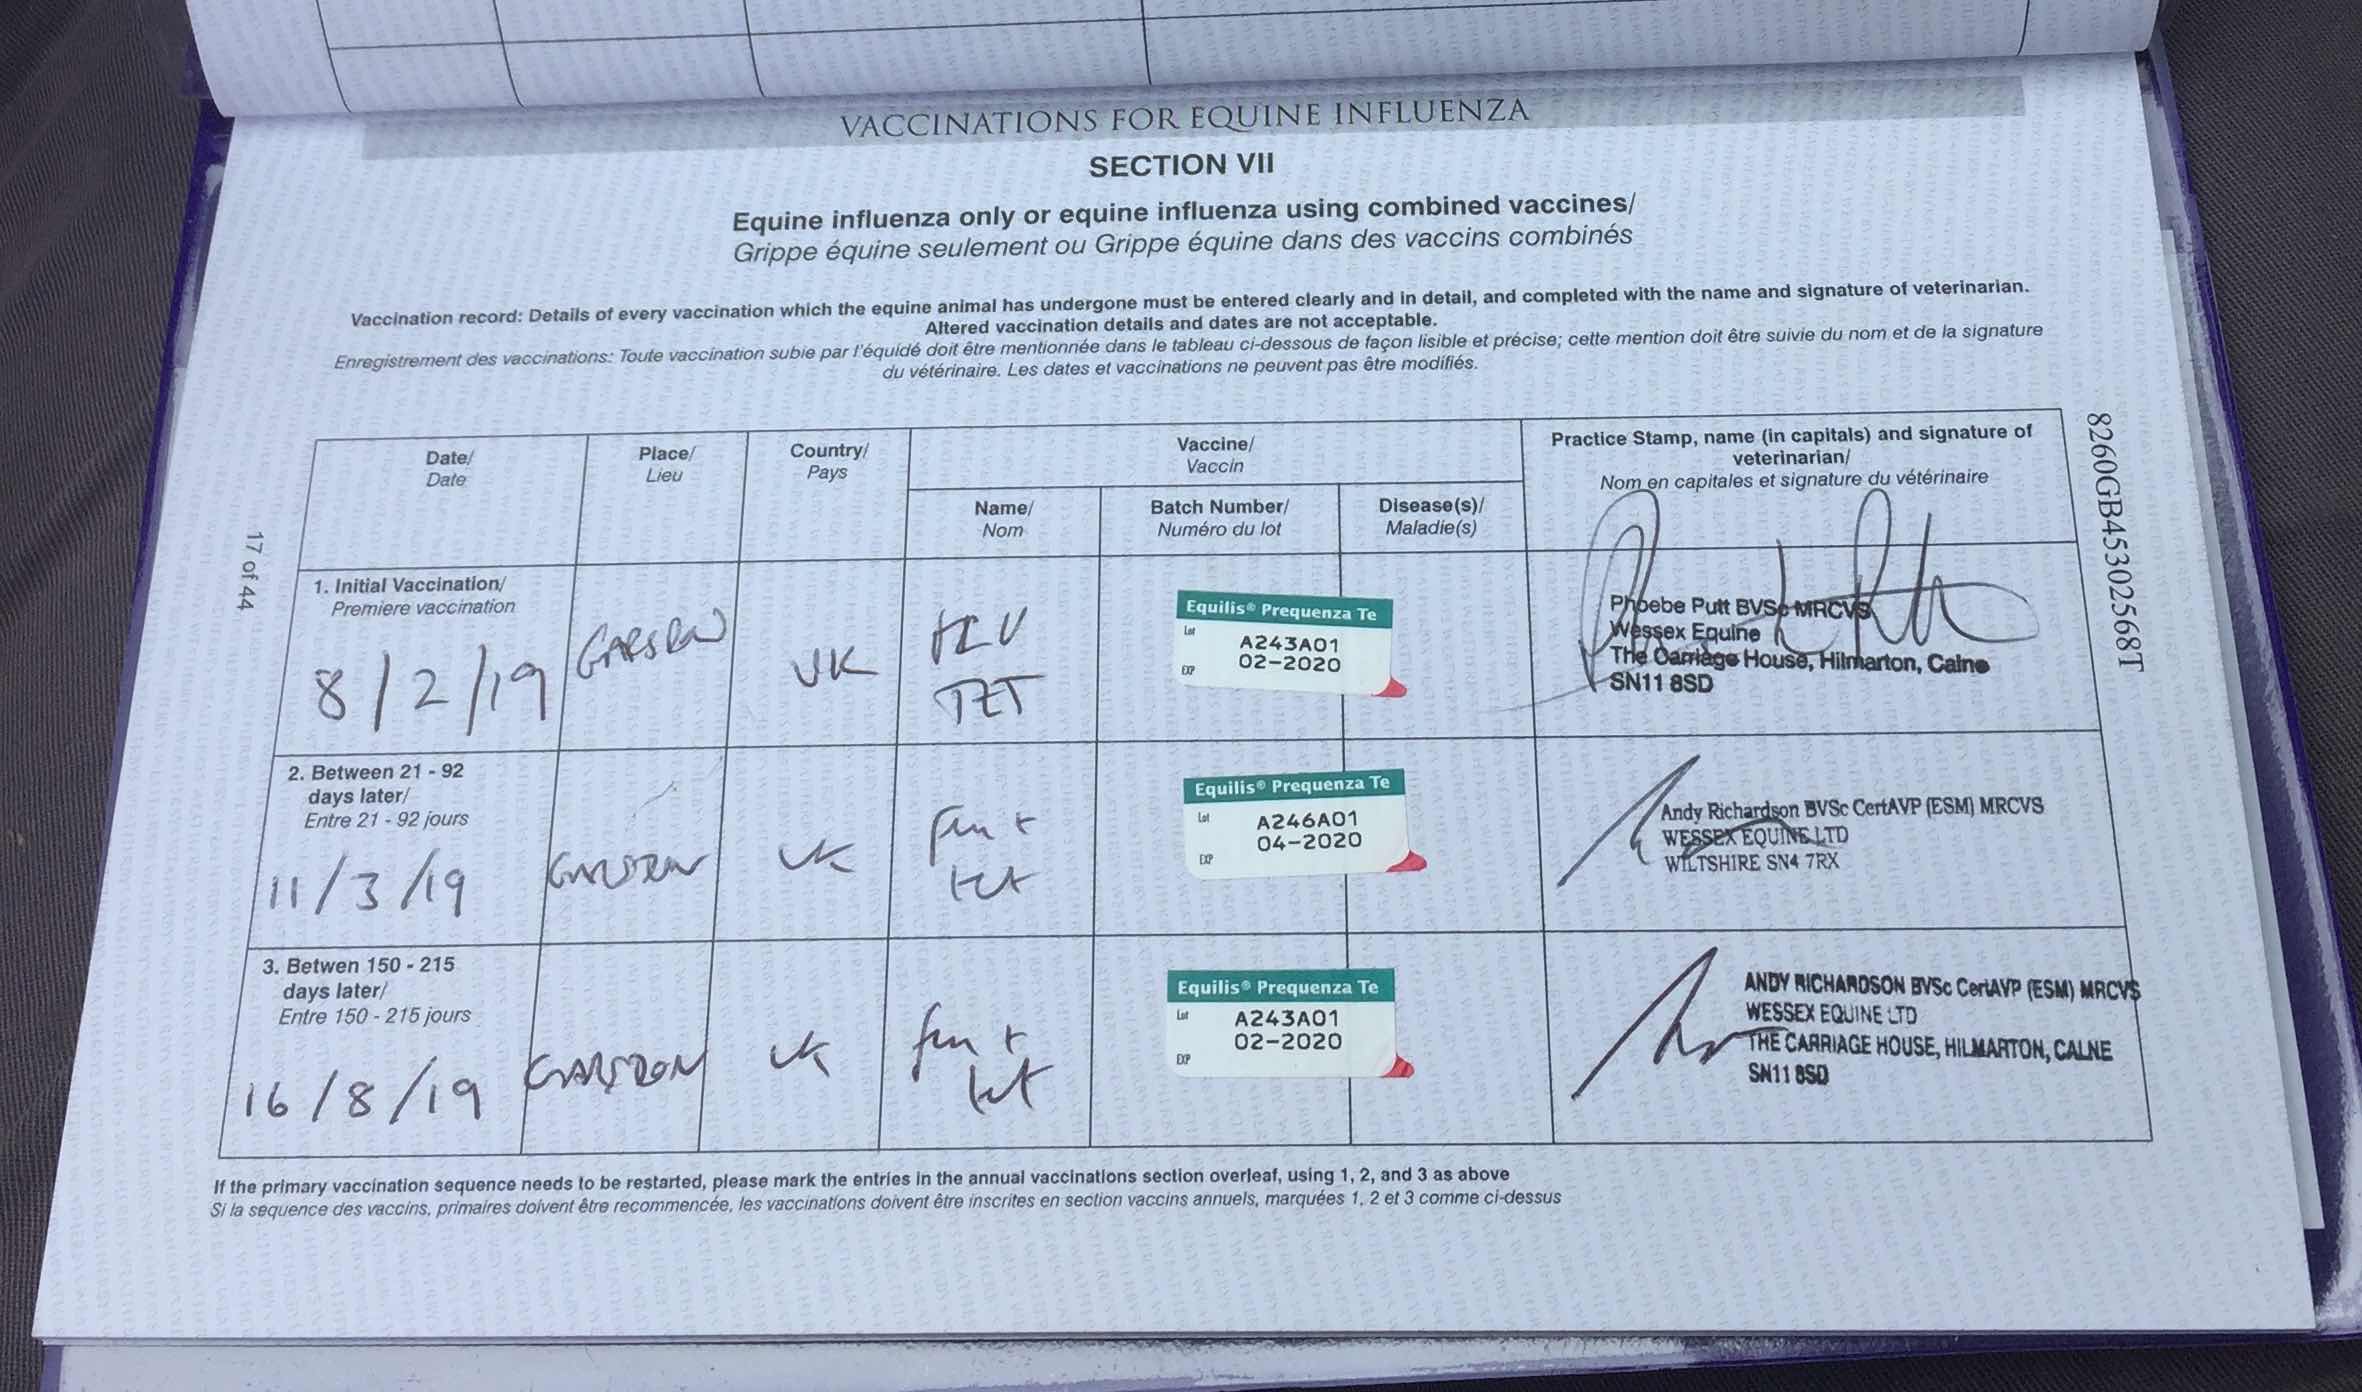 VACCINATIONS FOR EQUINE INFLUENZA
SECTION VII
Equine influenza only or equine influenza using combined vaccines/
Grippe équine seulement ou Grippe équine dans des vaccins combinés
Vaccination record: Details of every vaccination which the equine animal has undergone must be entered clearly and in detail, and completed with the name and signature of veterinarian.
Altered vaccination details and dates are not acceptable.
Enregistrement des vaccinations: Toute vaccination subie par l'équidé doit être mentionnée dans le tableau ci-dessous de façon lisible et précise; cette mention doit être suivie du nom et de la signature
du vétérinaire. Les dates et vaccinations ne peuvent pas être modifiés.
Date/
Date
Place/
Lieu
Country/
Pays
Vaccine/
Vaccin
Name/
Nom
Batch Number/
Numéro du lot
Disease(s)/
Maladie(s)
Practice Stamp, name (in capitals) and signature of
veterinarian/
Nom en capitales et signature du vétérinaire
1. Initial Vaccination/
Premiere vaccination
8/2/19
GARSDON
UK
FLU
TET
Equilis® Prequenza Te
Lot A243A01
EXP 02-2020
Phoebe Putt BVSc MRCVS
Wessex Equine
The Carriage House, Hilmarton, Calne
SN11 8SD
2. Between 21 - 92
days later/
Entre 21 - 92 jours
11/3/19
GARSDON
UK
flu +
tet
Equilis® Prequenza Te
Lot A246A01
EXP 04-2020
Andy Richardson BVSc CertAVP (ESM) MRCVS
WESSEX EQUINE LTD
WILTSHIRE SN4 7RX
3. Betwen 150 - 215
days later/
Entre 150 - 215 jours
16/8/19
GARSDON
UK
flu +
tet
Equilis® Prequenza Te
Lot A243A01
EXP 02-2020
ANDY RICHARDSON BVSc CertAVP (ESM) MRCVS
WESSEX EQUINE LTD
THE CARRIAGE HOUSE, HILMARTON, CALNE
SN11 8SD
If the primary vaccination sequence needs to be restarted, please mark the entries in the annual vaccinations section overleaf, using 1, 2, and 3 as above
Si la sequence des vaccins, primaires doivent être recommencée, les vaccinations doivent être inscrites en section vaccins annuels, marquées 1, 2 et 3 comme ci-dessus
17 of 44
8260GB45302568T